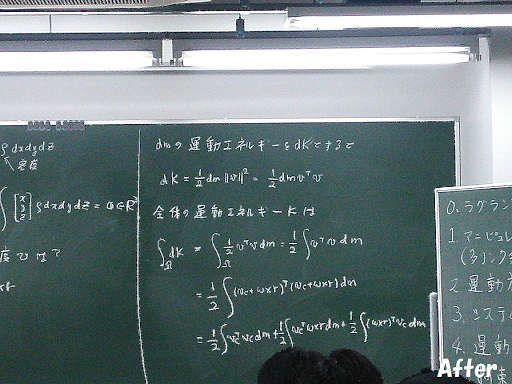 ρdxdydz
密度
∫[x y z]ρdxdydz = 0 ∈ R³
度では?
dmの運動エネルギーをdKとすると
dK = 1/2 dm ||v||² = 1/2 dm vᵀv
全体の運動エネルギーKは
∫_Ω dK = ∫_Ω 1/2 vᵀv dm = 1/2 ∫ vᵀv dm
= 1/2 ∫ (v_c + ω×r)ᵀ(v_c + ω×r) dm
= 1/2 ∫ v_cᵀ v_c dm + 1/2 ∫ v_cᵀ ω×r dm + 1/2 ∫ (ω×r)ᵀ v_c dm
0. ラグラン
1. マニピュレ
(3リンク
2. 運動方
3. システ
4. 運動
After